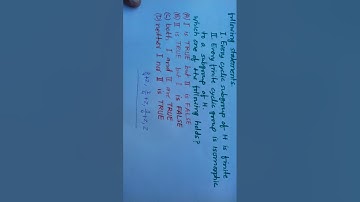 following statements
I. Every cyclic subgroup of H is finite
II. Every finite cyclic group is isomorphic
to a subgroup of H.
Which one of the following holds?
(A) I is TRUE but II is FALSE
(B) II is TRUE but I is FALSE
(C) both I and II are TRUE
(D) neither I nor II is TRUE